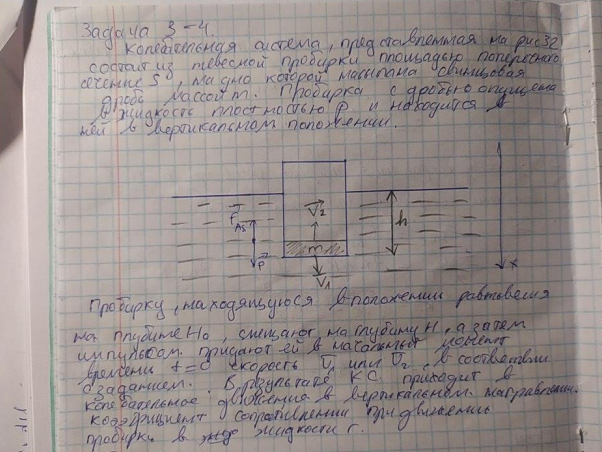 Задача 3-4.
Колебательная система, представленная на рис 32
состоит из невесомой пробирки площадью поперечного
сечения S, на дно которой насыпана свинцовая
дробь массой m. Пробирка с дробью опущена
в жидкость плотностью ρ и находится в
ней в вертикальном положении.
F As
V2
h
m
P
V1
x
Пробирку, находящуюся в положении равновесия
на глубине H0, смещают на глубину H, а затем
импульсом придают ей в начальный момент
времени t=0 скорость V1 или V2, в соответствии
с заданием. В результате КС приходит в
колебательное движение в вертикальном направлении.
Коэффициент сопротивления при движении
пробирки в жидкости r.